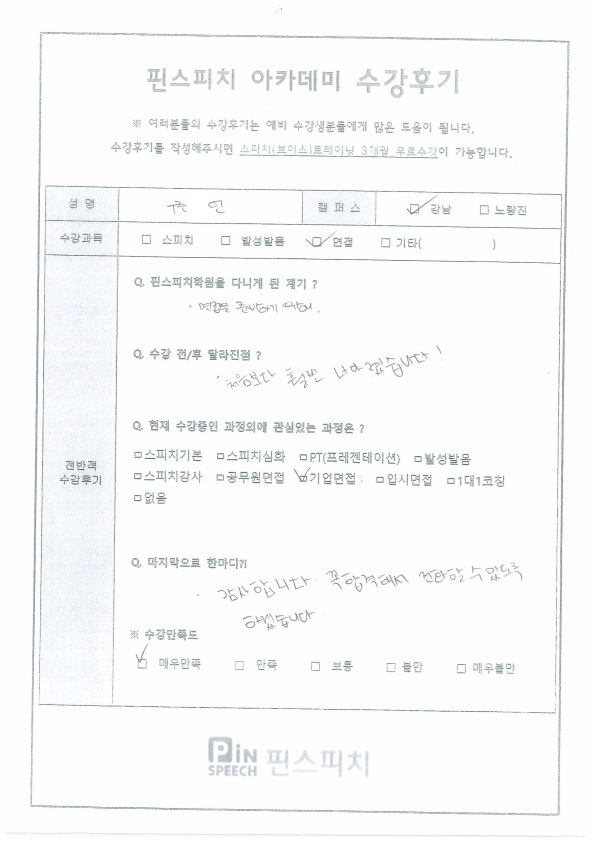 핀스피치 아카데미 수강후기
※ 여러분들의 수강후기는 예비 수강생분들에게 많은 도움이 됩니다.
수강후기를 작성해주시면 스피치(보이스)트레이닝 3개월 무료수강이 가능합니다.
성 명 캠 퍼 스 ☑ 강남 □ 노량진
수강과목 □ 스피치 □ 발성발음 ☑ 면접 □ 기타( )
전반적
수강후기
Q. 핀스피치학원을 다니게 된 계기 ?
· 면접을 준비하기 위해.
Q. 수강 전/후 달라진점 ?
· 처음보다 훨씬 나아졌습니다!
Q. 현재 수강중인 과정외에 관심있는 과정은 ?
□스피치기본 □스피치심화 □PT(프레젠테이션) □발성발음
□스피치강사 □공무원면접 ☑기업면접 □입시면접 □1대1코칭
□없음
Q. 마지막으로 한마디?!
· 감사합니다. 꼭 합격해서 전화할 수 있도록
하겠습니다
※ 수강만족도
☑ 매우만족 □ 만족 □ 보통 □ 불만 □ 매우불만
PiN
SPEECH 핀스피치